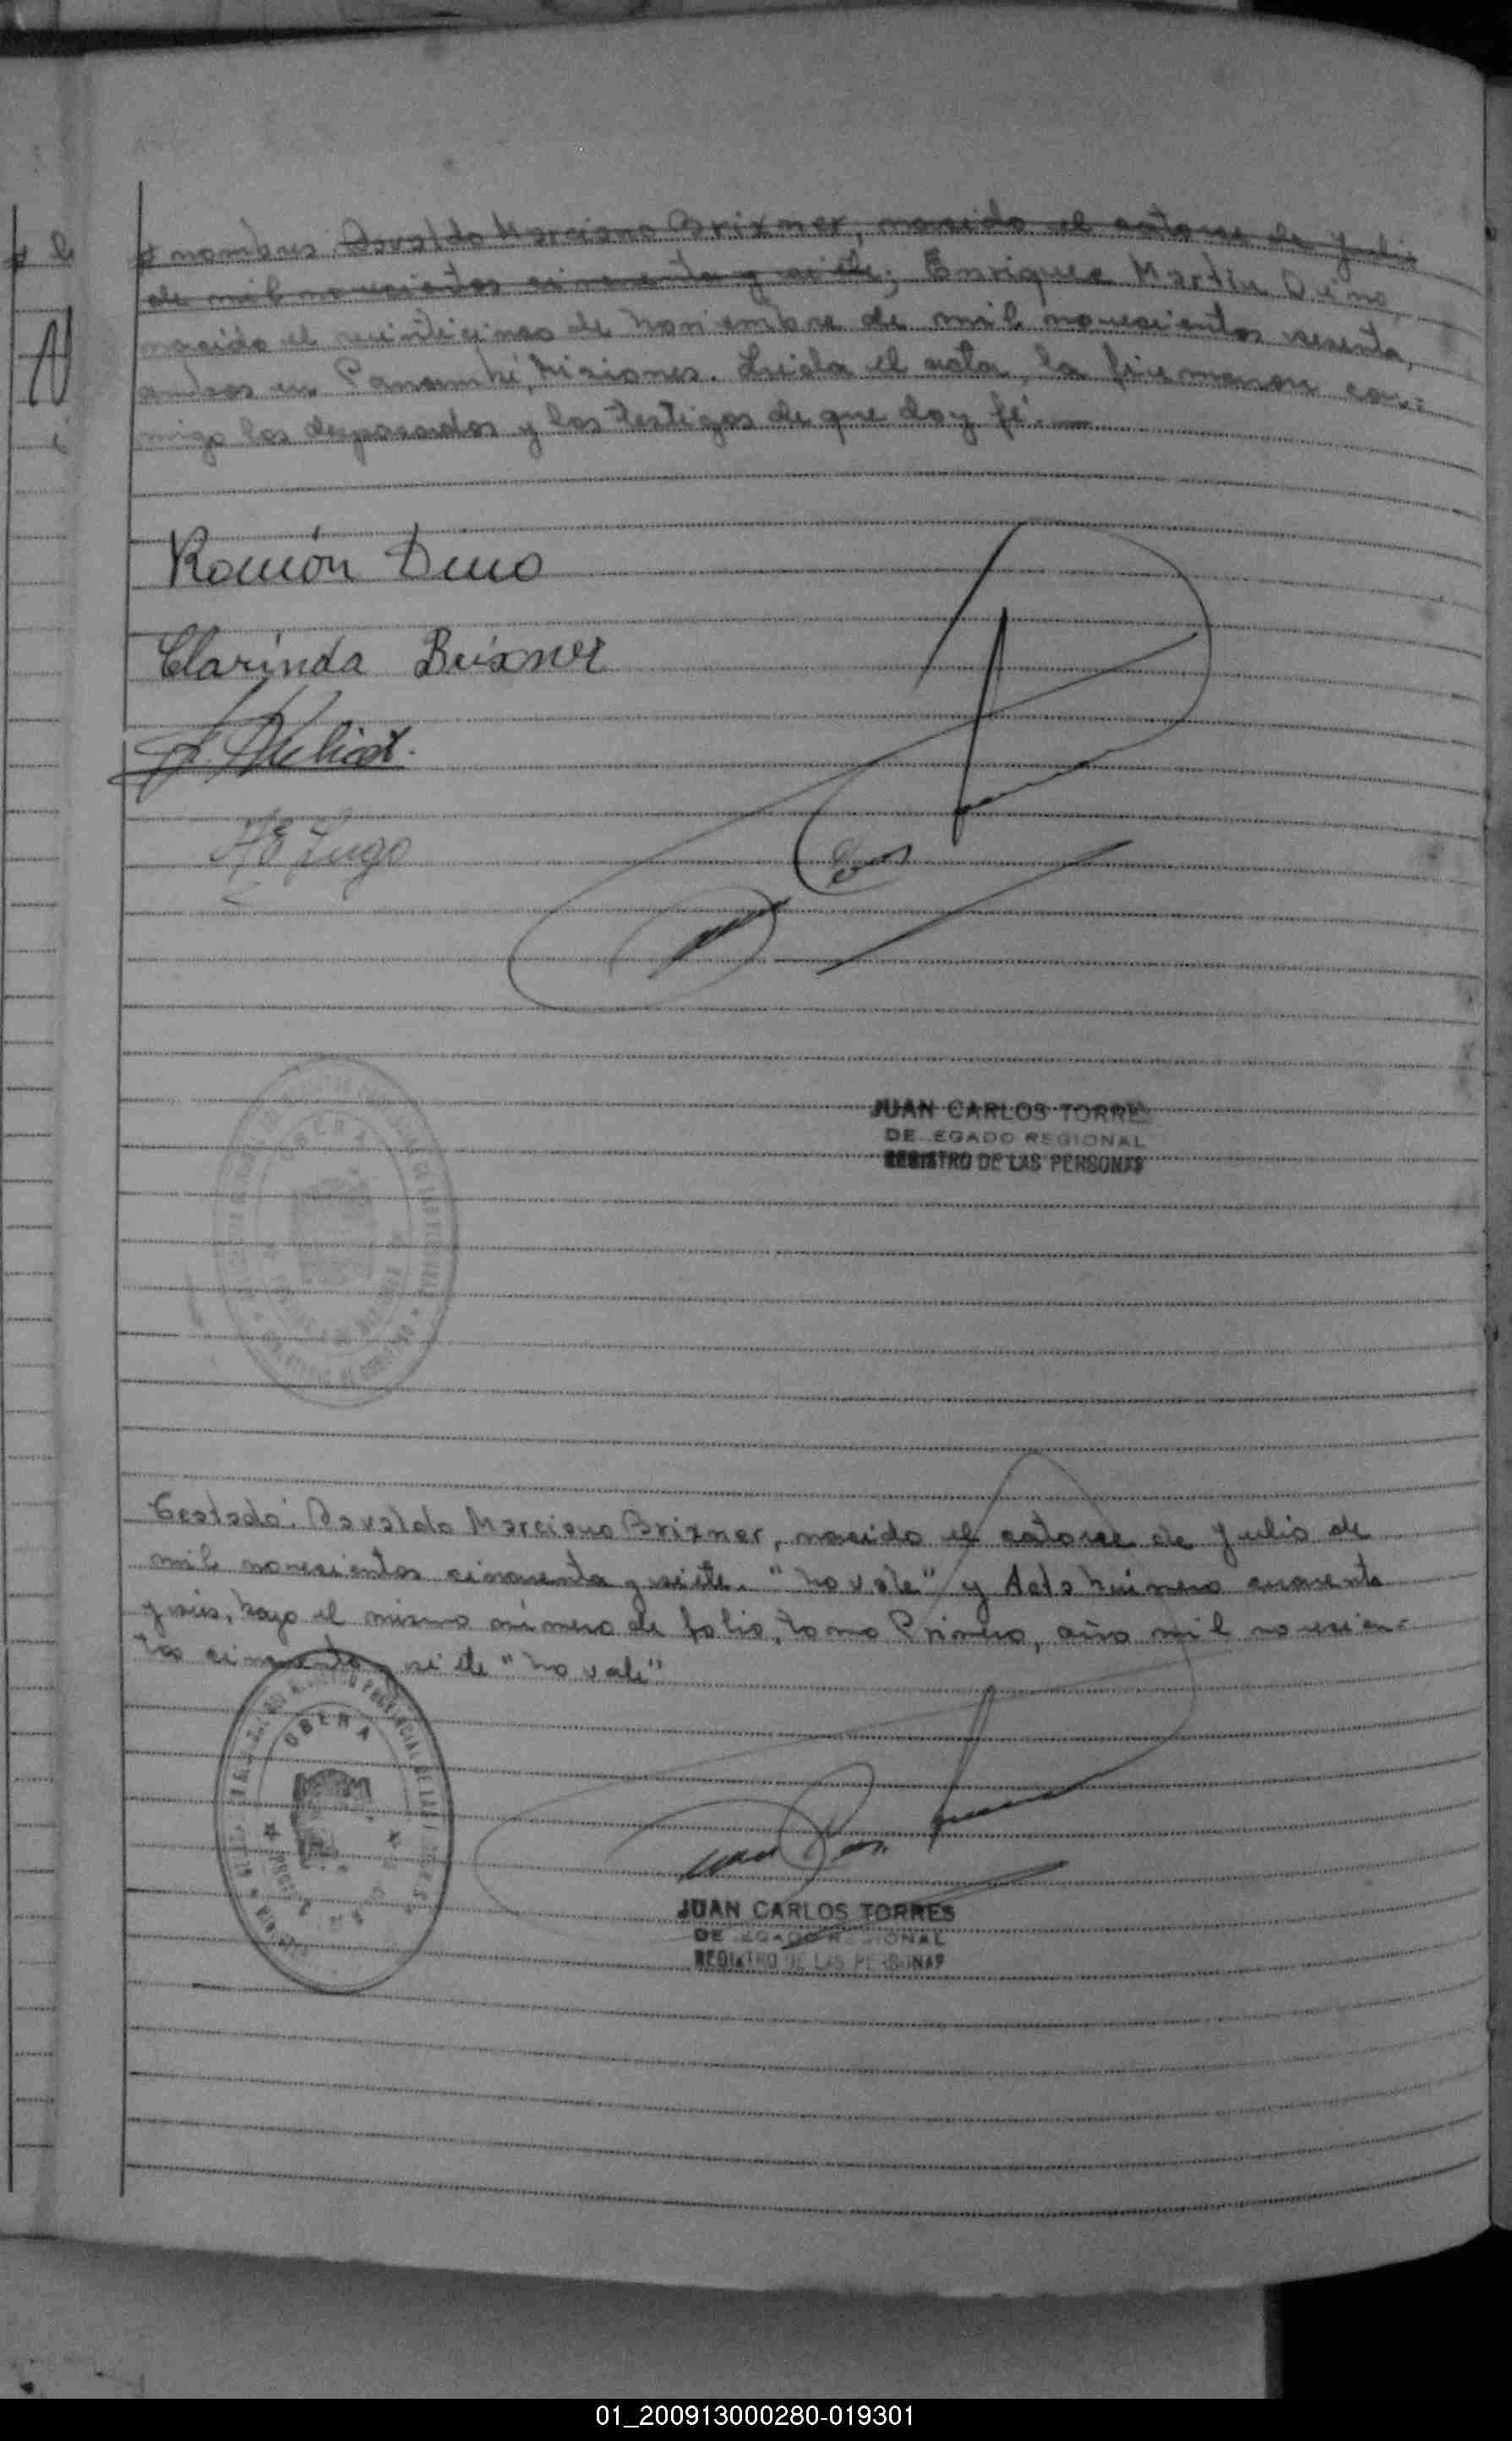 nombres Osvaldo Marciano Brixner, nacido el catorce de Julio
de mil novecientos cincuenta y siete; Enrique Martin Dino,
nacido el veinticinco de Noviembre de mil novecientos sesenta,
ambos en Panambí, Misiones. Leida el acta, la firmaron con-
migo los desposados y los testigos de que doy fé.
Ramón Dino
Clarinda Brixner
Lugo
JUAN CARLOS TORRE
DE EGADO REGIONAL
REGISTRO DE LAS PERSONAS
Testado: Osvaldo Marciano Brixner, nacido el catorce de Julio de
mil novecientos cincuenta y siete. "No vale" y Acta Número cuarenta
y seis, bajo el mismo número de folio, tomo Primero, año mil novecien-
tos cincuenta y siete "No vale"
OBERA
JUAN CARLOS TORRES
DE EGADO REGIONAL
REGISTRO DE LAS PERSONAS
01_200913000280-019301